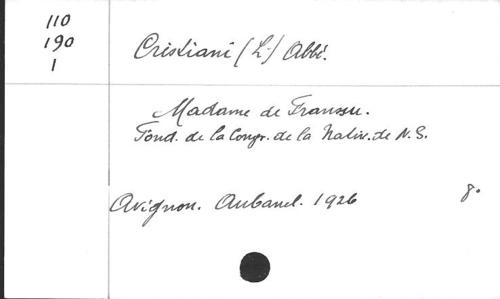 110
190
1
Cristiani (L.) Abbé.
Madame de Franssu.
Fond. de la Congr. de la Nativ. de N. S.
Avignon. Aubanel. 1926 8°.